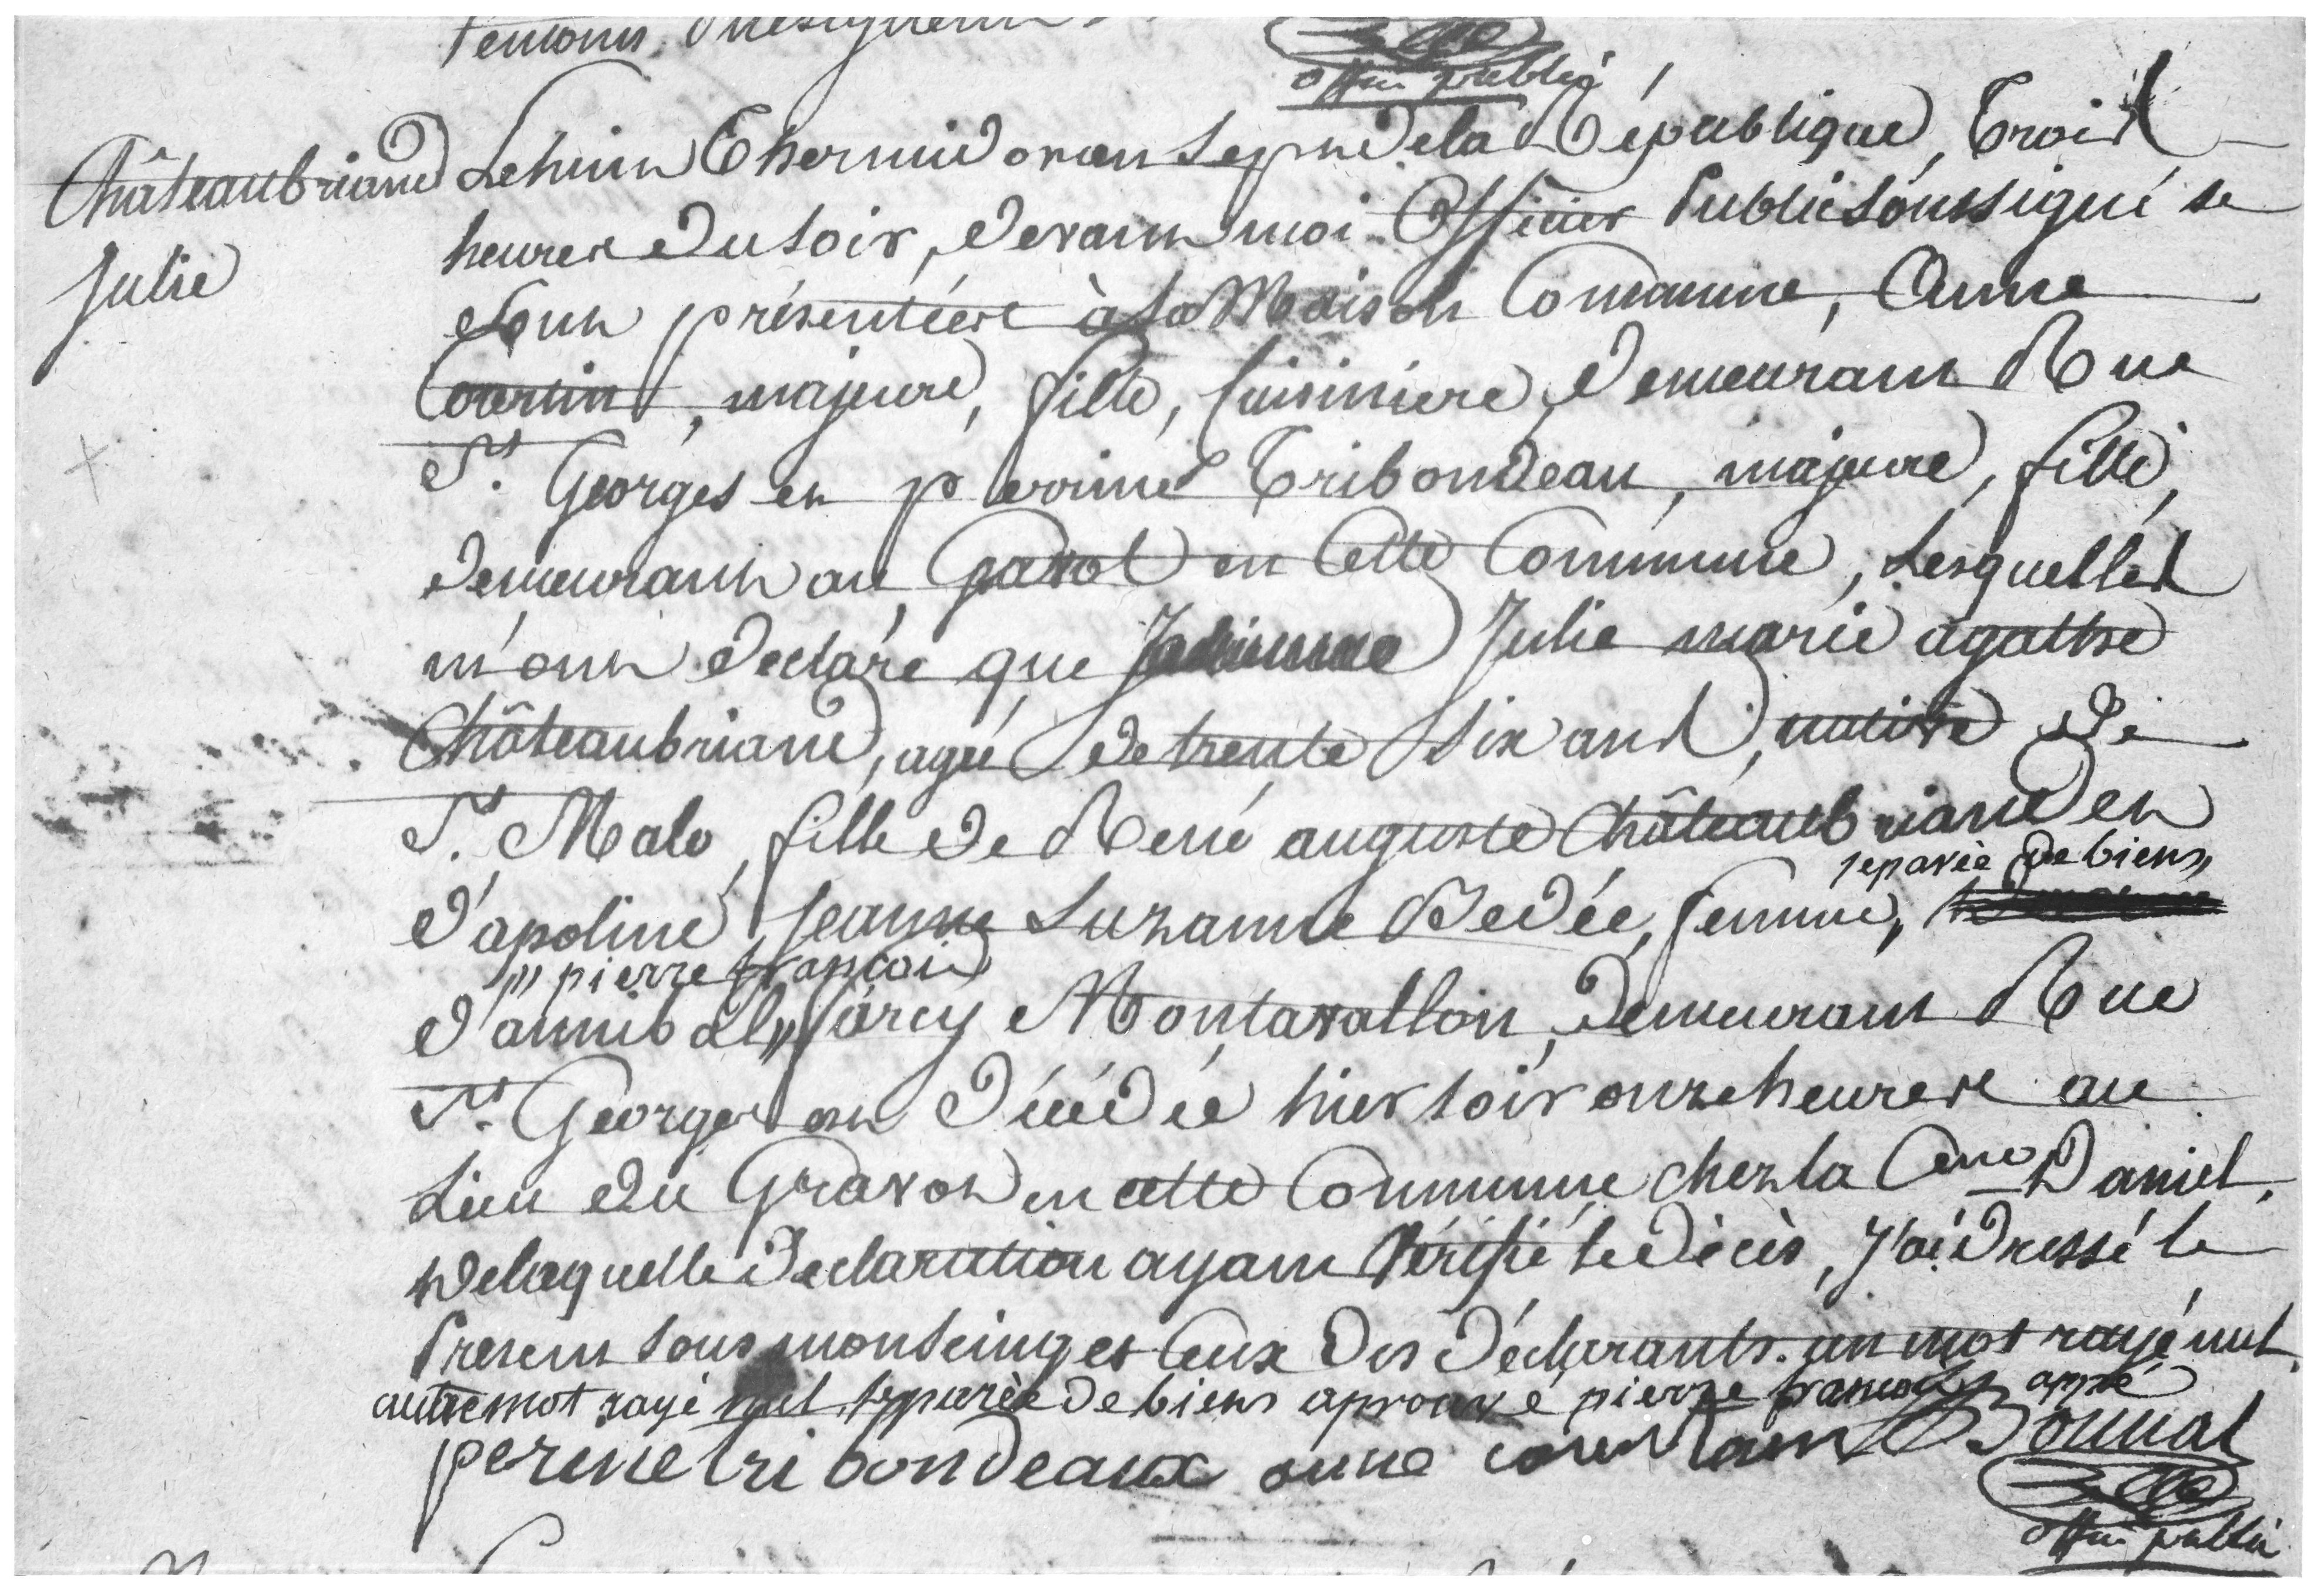 temoins
offi. public
Châteaubriand
Julie
Le huit Thermidor an Sept de la République, Trois
heures du Soir, devant moi Officier Public Soussigné se
Sont présentées à la Maison Commune, Anne
Courtin, majeure, fille, Cuisiniere, demeurant Rue
St. Georges et perrine Tribondeau, majeure, fille,
demeurant au en Cette Commune, Lesquelles
m'ont declaré que Julie marie agathe
Châteaubriand, agée de trente Six ans, native de
St. Malo, fille de René auguste Châteaubriand et
separée de biens
d'apoline Jeanne Suzanne Bedée, femme,
" pierre françois
d'annibal " farcy Montavallon, demeurant Rue
St. Georges est décédée hier soir onze heures au
Lieu du en cette Commune chez la Cene Daniel.
de laquelle declaration ayant Vérifié le décès, j'ai dressé le
Present sous mon seing et Ceux des déclarants. un mot rayé nul.
autre mot rayé nul, separée de biens aprouvé pierre françois appé
perine tribondeaux anne Bonnal
offi. public